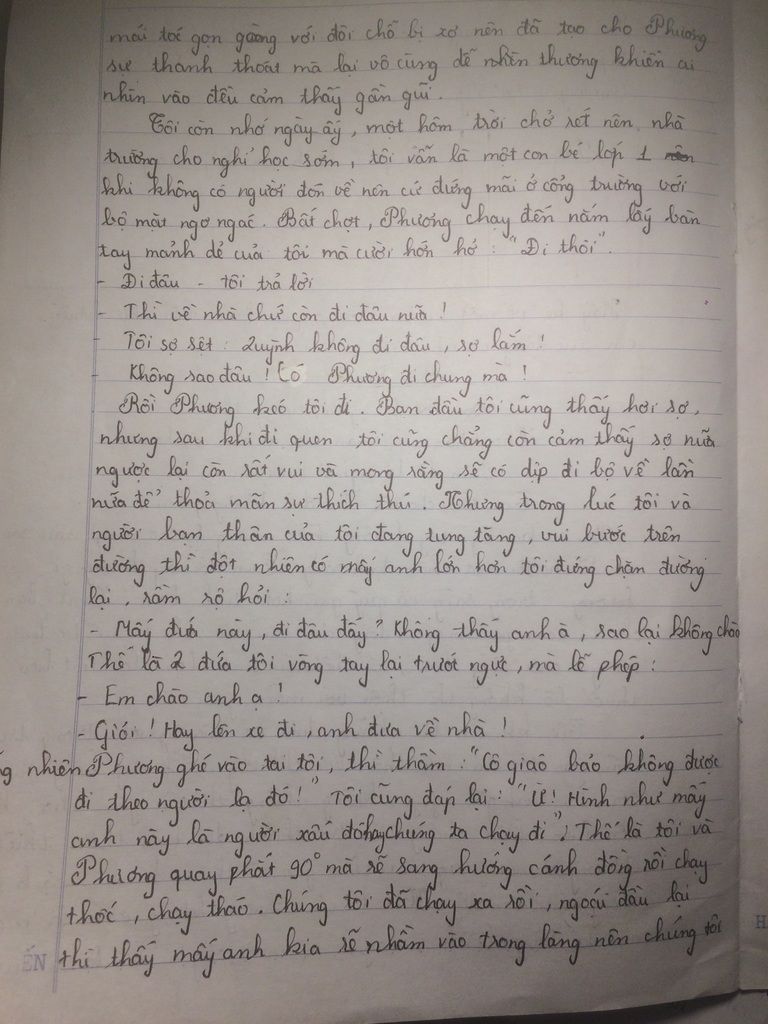 mái toé gọn gàng với đôi chỗ bị xơ nên đã tạo cho Phương
sự thanh thoát mà lại vô cùng dễ nhìn thương khiến ai
nhìn vào đều cảm thấy gần gũi.
Tôi còn nhớ ngày ấy, một hôm trời chở rét nên nhà
trường cho nghỉ học sớm, tôi vẫn là một con bé lớp 1
khi không có người đón về nên cứ đứng mãi ở cổng trường với
bộ mặt ngơ ngác. Bất chợt, Phương chạy đến nắm lấy bàn
tay mảnh dẻ của tôi mà cười hớn hở : "Đi thôi".
- Đi đâu - tôi trả lời
- Thì về nhà chứ còn đi đâu nữa !
- Tôi sợ sệt : Quỳnh không đi đâu, sợ lắm !
- Không sao đâu ! Có Phương đi chung mà !
Rồi Phương kéo tôi đi. Ban đầu tôi cũng thấy hơi sợ,
nhưng sau khi đi quen tôi cũng chẳng còn cảm thấy sợ nữa
ngược lại còn rất vui và mong rằng sẽ có dịp đi bộ về lần
nữa để thoả mãn sự thích thú. Nhưng trong lúc tôi và
người bạn thân của tôi đang tung tăng, vui bước trên
đường thì đột nhiên có mấy anh lớn hơn tôi đứng chặn đường
lại, rầm rộ hỏi :
- Mấy đứa này, đi đâu đấy ? Không thấy anh à, sao lại không chào
Thế là 2 đứa tôi vòng tay lại trước ngực, mà lễ phép :
- Em chào anh ạ !
- Giỏi ! Hay lên xe đi, anh đưa về nhà !
nhiên Phương ghé vào tai tôi, thì thầm : "Cô giáo bảo không được
đi theo người lạ đó !" Tôi cũng đáp lại : "Ừ ! Hình như mấy
anh này là người xấu đó hay chúng ta chạy đi". Thế là tôi và
Phương quay phắt 90° mà rẽ sang hướng cánh đồng rồi chạy
thốc, chạy tháo. Chúng tôi đã chạy xa rồi, ngoái đầu lại
thì thấy mấy anh kia rẽ nhầm vào trong làng nên chúng tôi